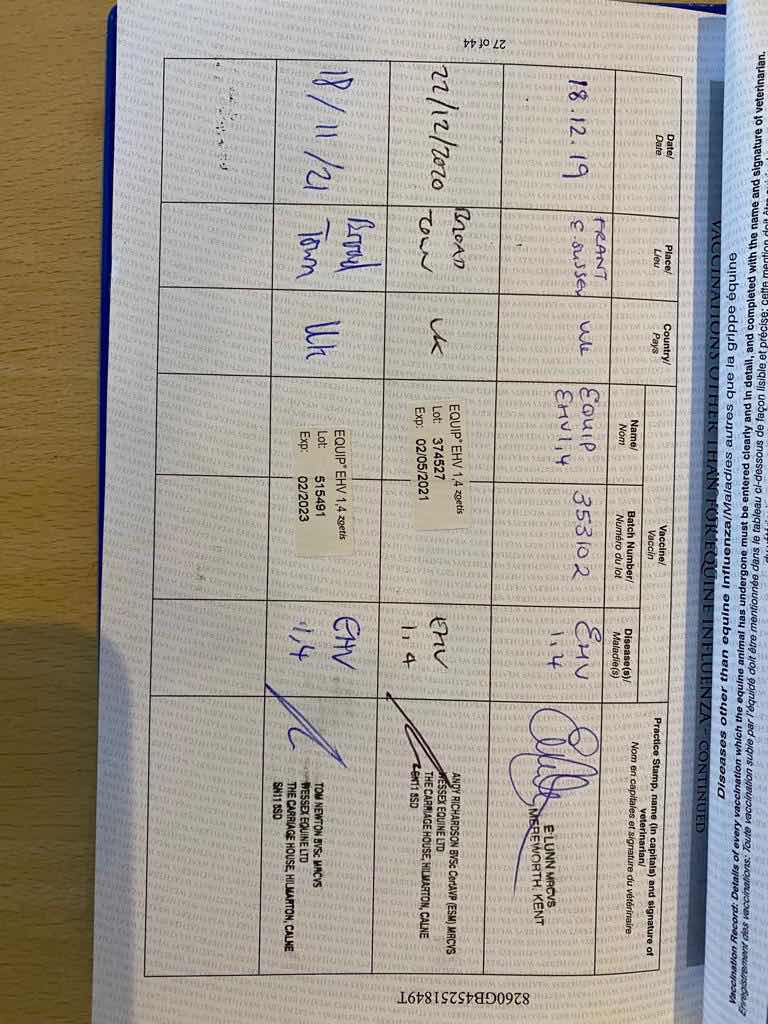 VACCINATIONS OTHER THAN FOR EQUINE INFLUENZA - CONTINUED
Diseases other than equine Influenza/Maladies autres que la grippe équine
Vaccination Record: Details of every vaccination which the equine animal has undergone must be entered clearly and in detail, and completed with the name and signature of veterinarian.
Enregistrement des vaccinations: Toute vaccination subie par l'équidé doit être mentionnée dans le tableau ci-dessous de façon lisible et précise; cette mention doit être
Date/
Date
Place/
Lieu
Country/
Pays
Vaccine/
Vaccin
Name/
Nom
Batch Number/
Numéro du lot
Disease(s)/
Maladie(s)
Practice Stamp, name (in capitals) and signature of
veterinarian/
Nom en capitales et signature du vétérinaire
18.12.19
FRANT
E. SUSSEX
UK
EQUIP
EHV1,4
353102
EHV
1,4
E LUNN MRCVS
MEREWORTH, KENT
22/12/2020
BROAD
TOWN
UK
EQUIP® EHV 1,4 zoetis
Lot: 374527
Exp: 02/05/2021
EHV
1,4
ANDY RICHARDSON BVSc CertAVP (ESM) MRCVS
WESSEX EQUINE LTD
THE CARRIAGE HOUSE, HILMARTON, CALNE
SN11 8SD
18/11/21
Broad
Town
UK
EQUIP® EHV 1,4 zoetis
Lot: 515491
Exp: 02/2023
EHV
1,4
TOM NEWTON BVSc MRCVS
WESSEX EQUINE LTD
THE CARRIAGE HOUSE, HILMARTON, CALNE
SN11 8SD
27 of 44
8260GB45251849T